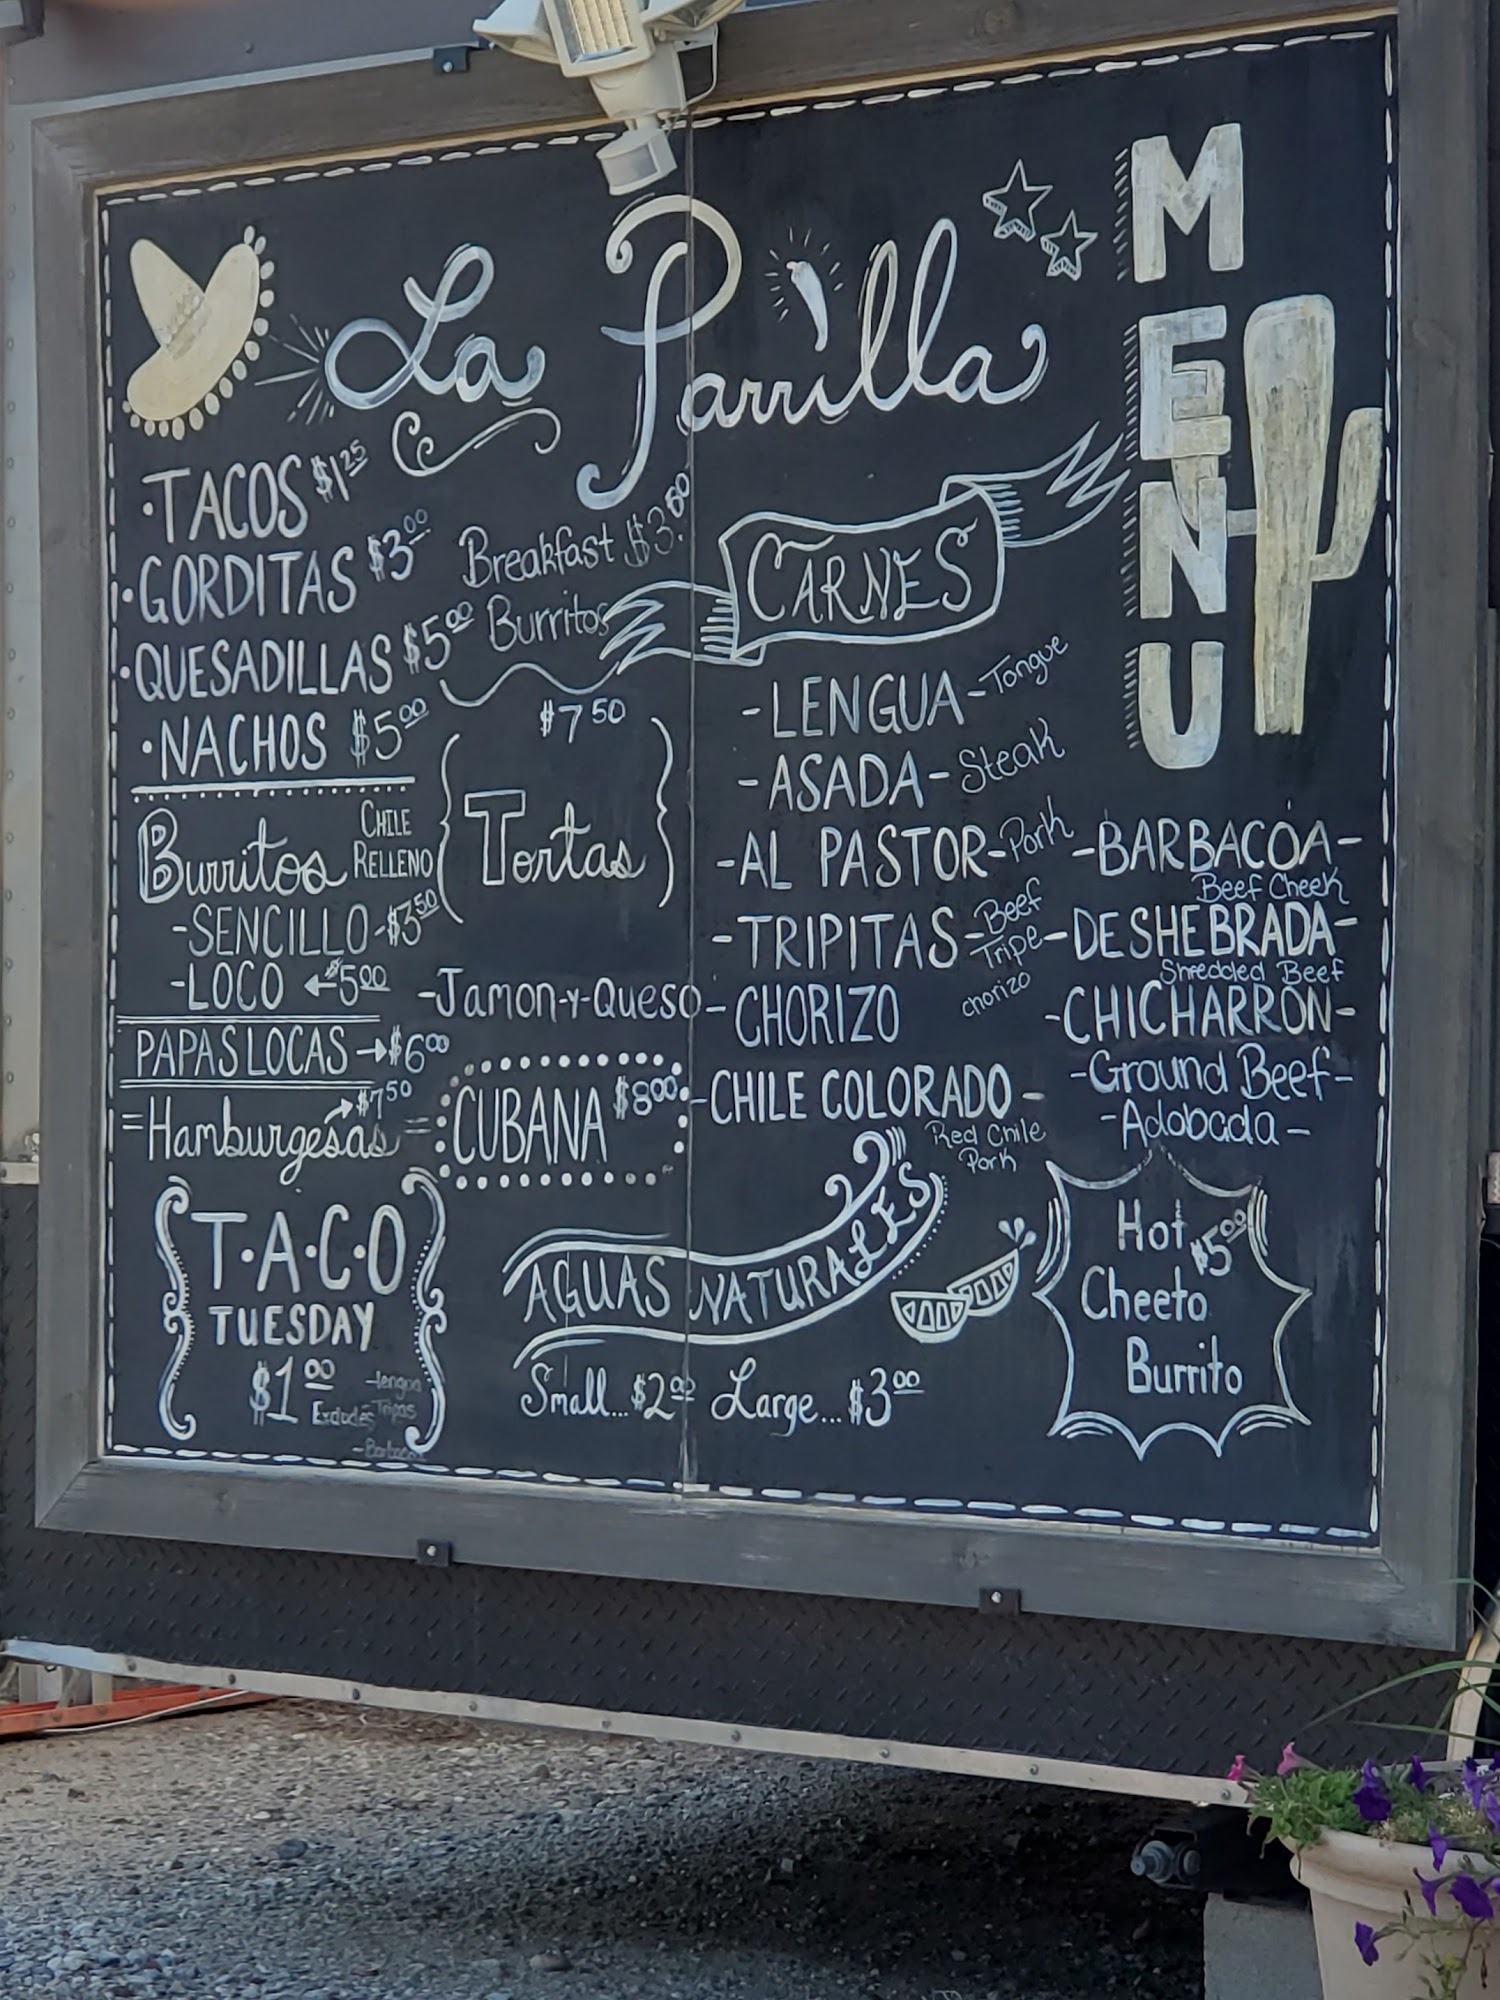 La Parrilla
MENU
·TACOS $1.25
·GORDITAS $3.00
·QUESADILLAS $5.00
·NACHOS $5.00
Breakfast $3.00
Burritos
Burritos CHILE RELLENO
-SENCILLO-$3.50
-LOCO ←$5.00
PAPAS LOCAS→$6.00
=Hamburgesas= →$7.50
$7.50
Tortas
-Jamon-y-Queso
CUBANA $8.00
CARNES
-LENGUA-Tongue
-ASADA-Steak
-AL PASTOR-Pork
-TRIPITAS-Beef Tripe
-CHORIZO chorizo
-CHILE COLORADO-
Red Chile
Pork
-BARBACOA-
Beef Cheek
-DESHEBRADA-
Shredded Beef
-CHICHARRÓN-
-Ground Beef-
-Adobada-
T·A·C·O
TUESDAY
$1.00
Excludes
-lengua
Tripas
-Barbacoa
AGUAS NATURALES
Small...$2.00 Large...$3.00
Hot $5.00
Cheeto
Burrito